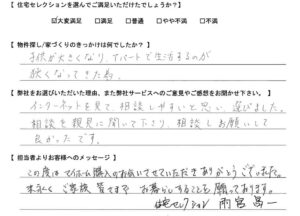 【 住宅セレクションを選んでご満足いただけたでしょうか？ 】
☑大変満足 □満足 □普通 □やや不満 □不満
【 物件探し/家づくりのきっかけは何でしたか？ 】
子供が大きくなり、アパートで生活するのが
狭くなってきた為。
【 弊社をお選びいただいた理由、また弊社サービスへのご意見やご感想をお聞かせ下さい。 】
インターネットを見て、相談しやすいと思い、選びました。
相談を親身に聞いて下さり、相談しお願いして
良かったです。
【 担当者よりお客様へのメッセージ 】
この度はマイホーム購入のお手伝いさせていただきありがとうございました。
末永く ご家族 皆さまで お暮らしすることを 願っております。
住宅セレクション 雨宮